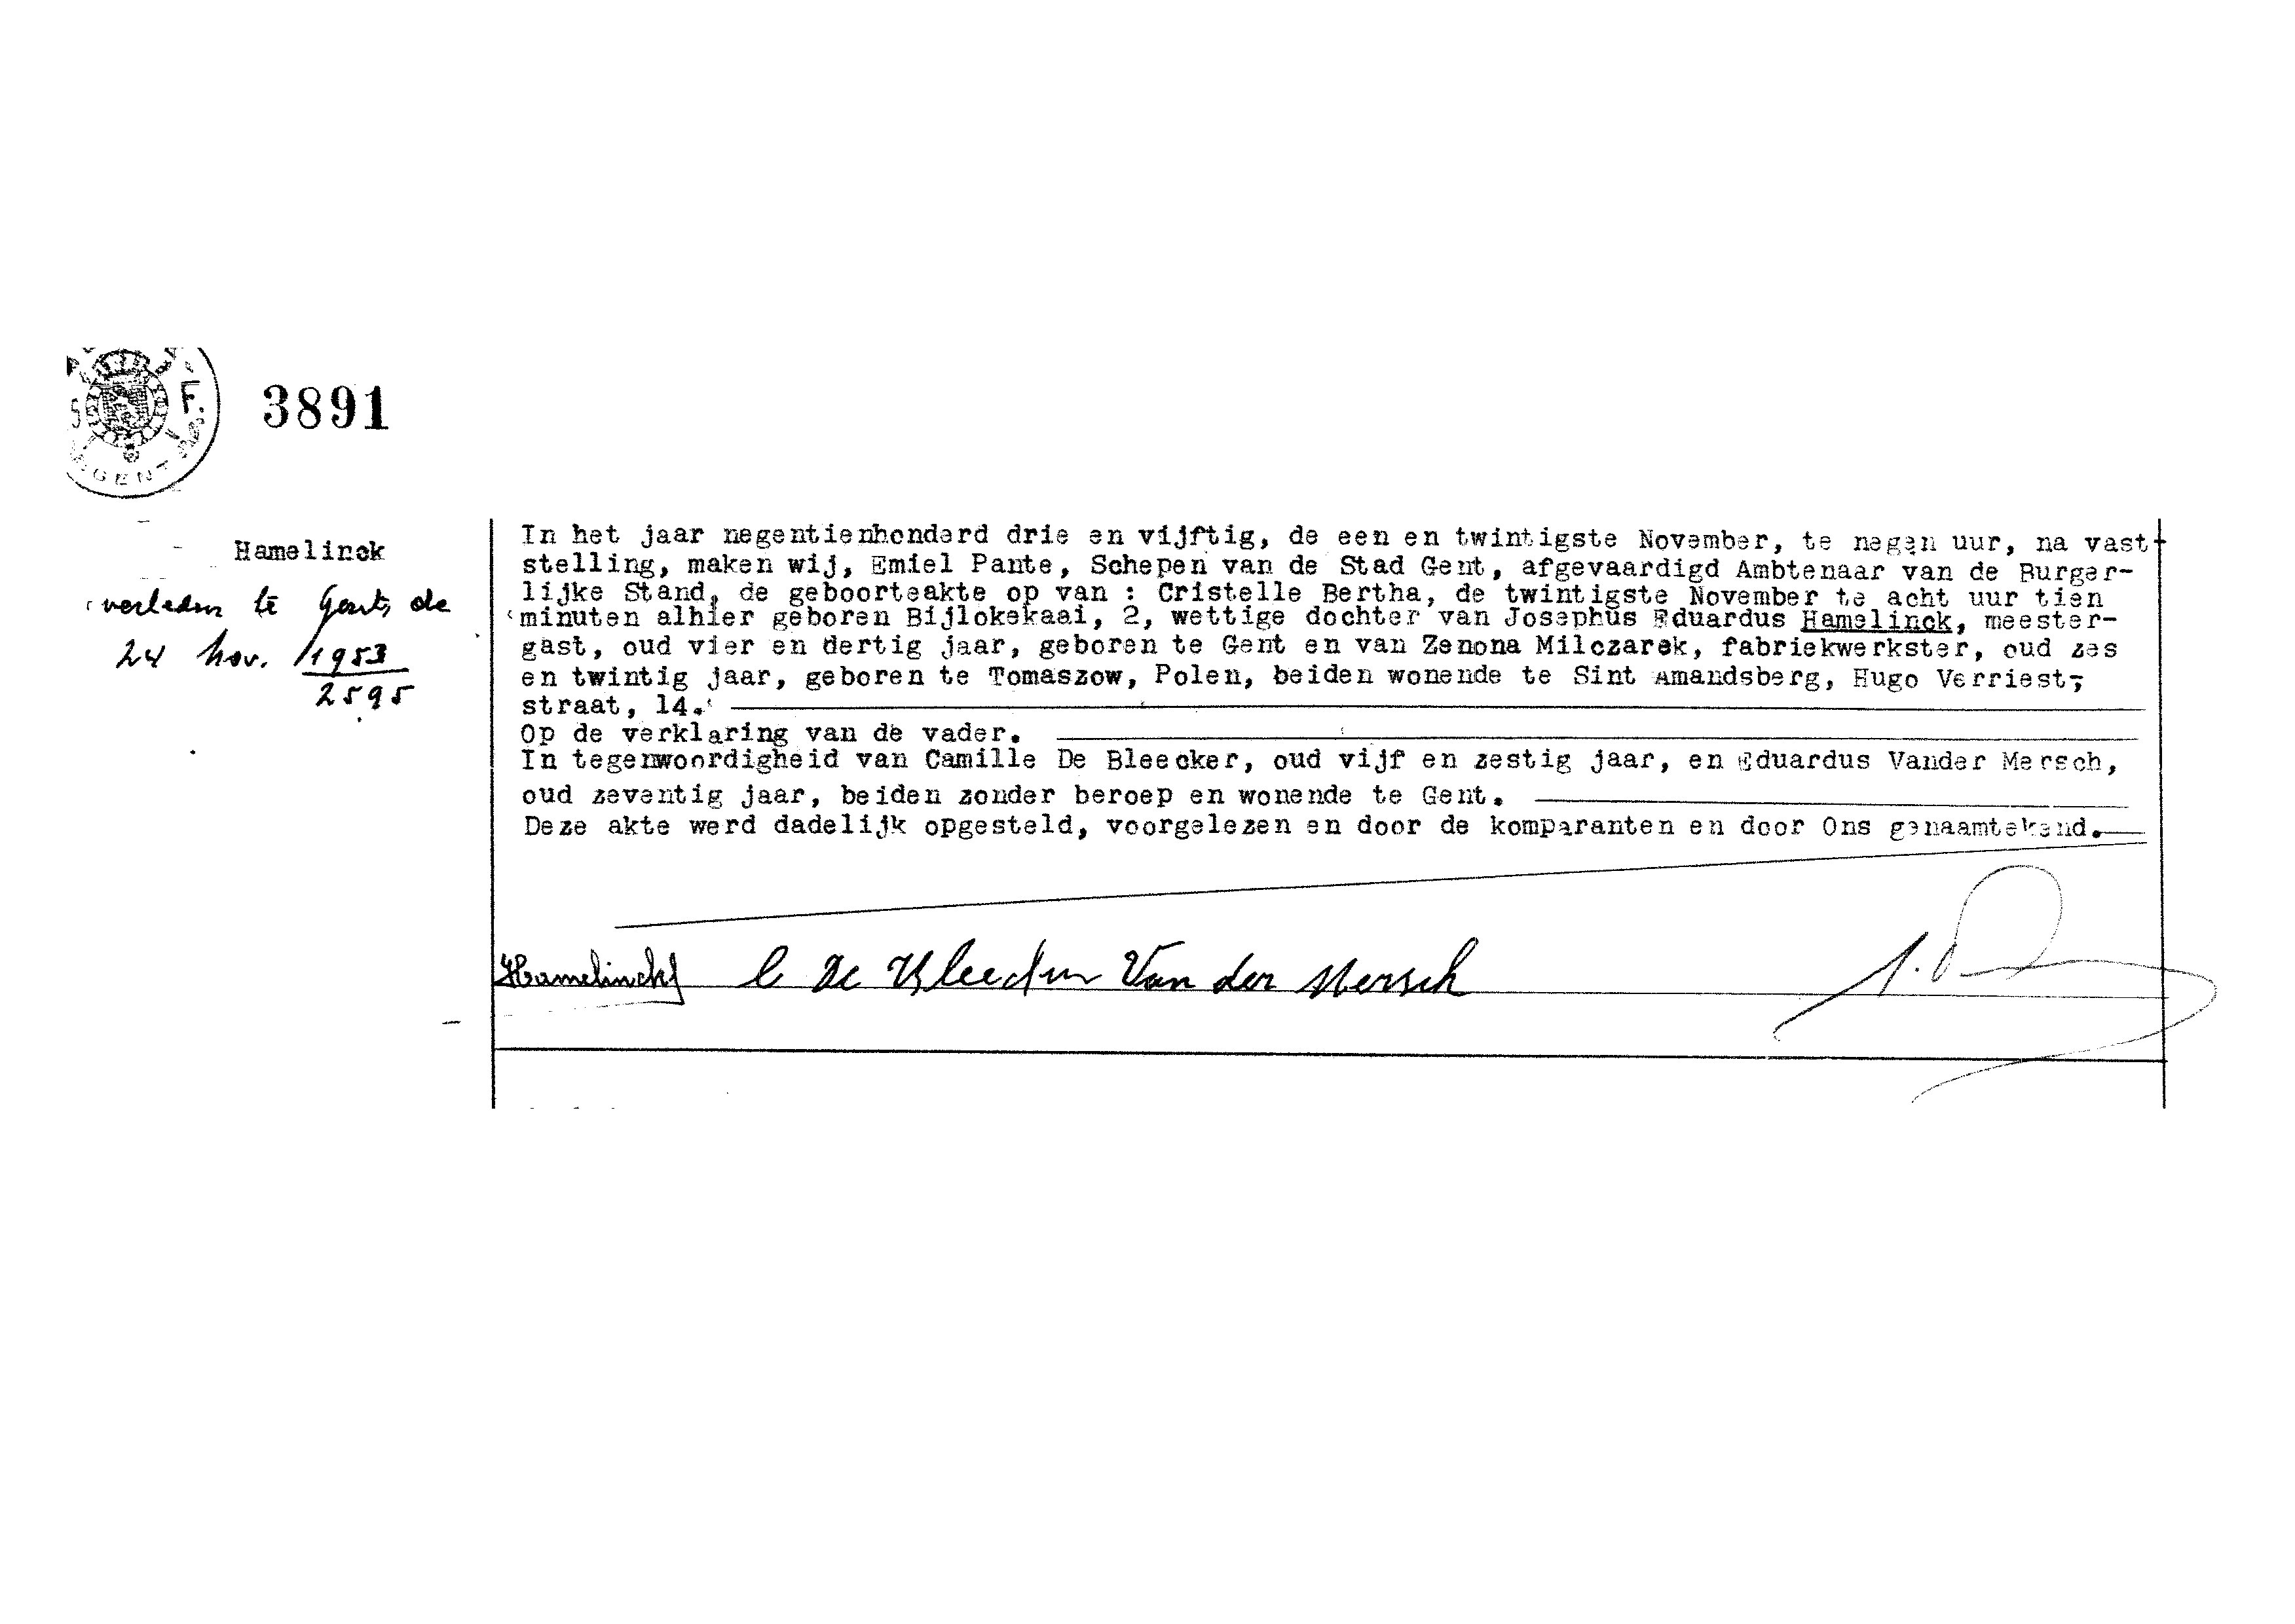 F.
GENT
3891
Hamelinck
overleden te Gent, de
24 Nov. 1953
2595
In het jaar negentienhonderd drie en vijftig, de een en twintigste November, te negen uur, na vast-
stelling, maken wij, Emiel Pante, Schepen van de Stad Gent, afgevaardigd Ambtenaar van de Burger-
lijke Stand, de geboorteakte op van : Cristelle Bertha, de twintigste November te acht uur tien
minuten alhier geboren Bijlokekaai, 2, wettige dochter van Josephus Eduardus Hamelinck, meester-
gast, oud vier en dertig jaar, geboren te Gent en van Zenona Milczarek, fabriekwerkster, oud zes
en twintig jaar, geboren te Tomaszow, Polen, beiden wonende te Sint Amandsberg, Hugo Verriest-
straat, 14.
Op de verklaring van de vader.
In tegenwoordigheid van Camille De Bleecker, oud vijf en zestig jaar, en Eduardus Vander Mersch,
oud zeventig jaar, beiden zonder beroep en wonende te Gent.
Deze akte werd dadelijk opgesteld, voorgelezen en door de komparanten en door Ons genaamtekend.
Hamelinck C De Bleecker Van der Mersch